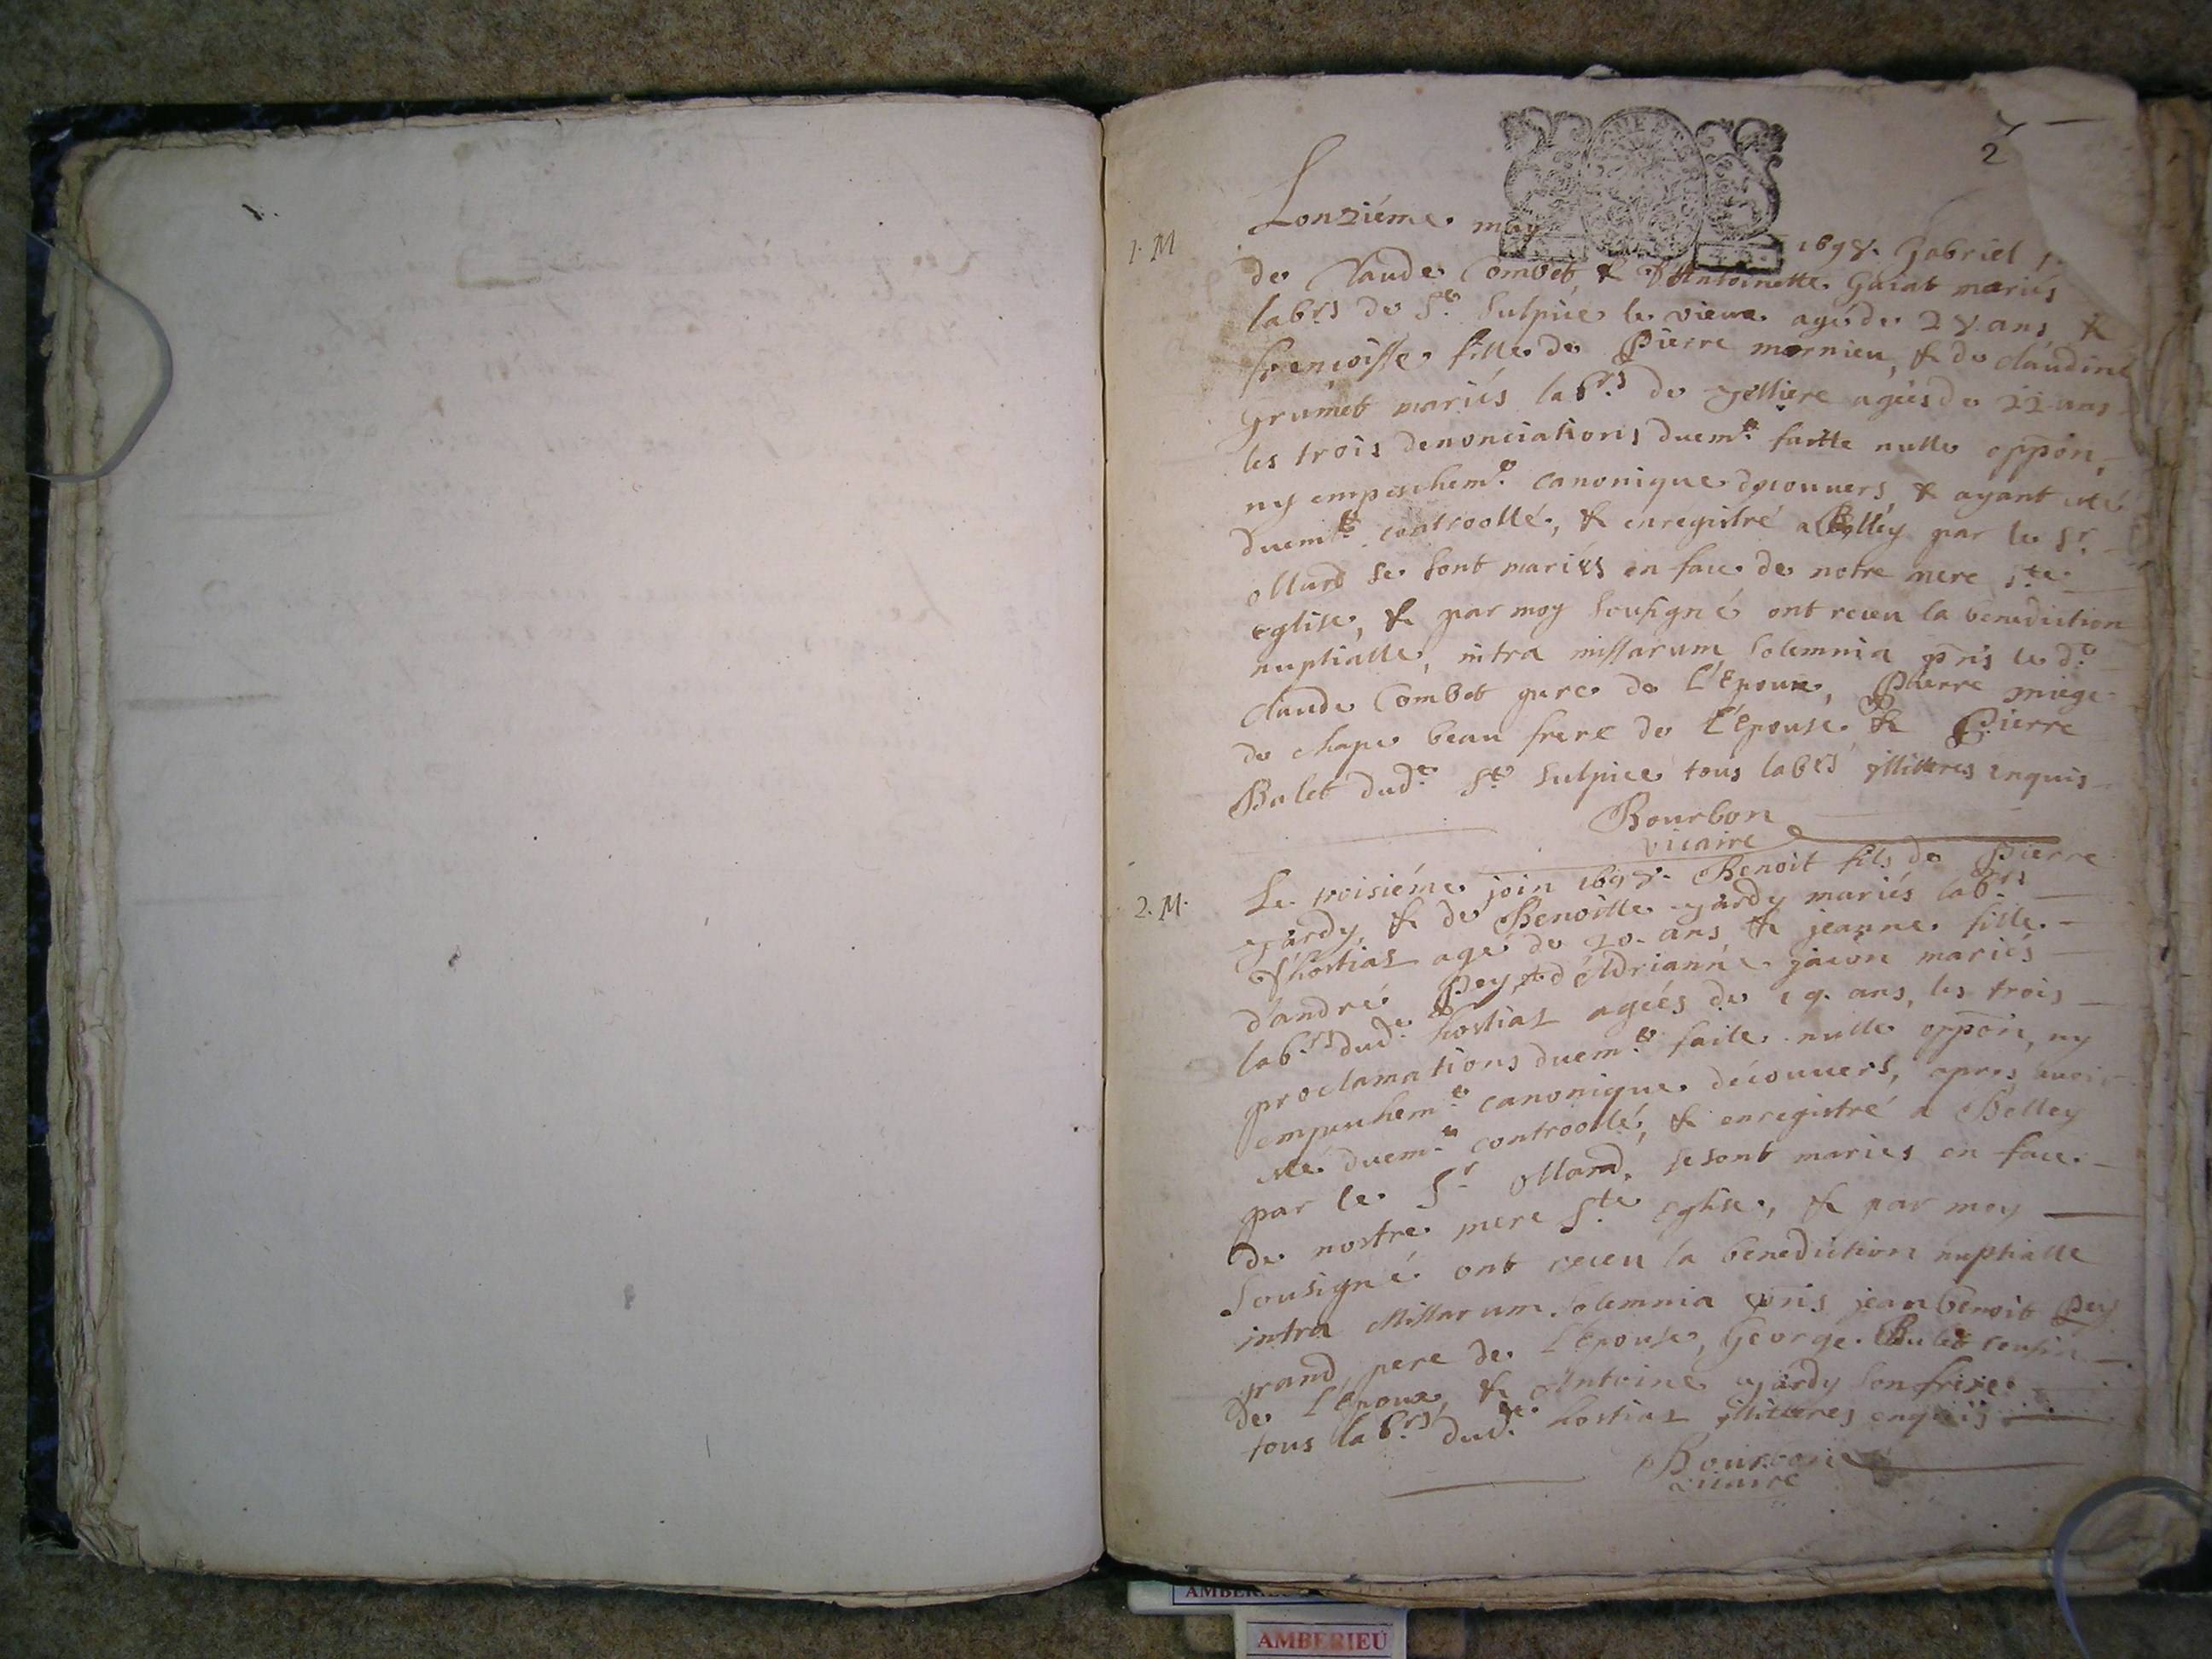 2
1. M
Lonziéme may 1698. Gabriel
de Claude Combet, & d'Antoinette Guiat mariés
labrs de St. Sulpice le vieux agé de 28 ans &
francoisse fille de Pierre mornieu, & de claudine
Grumet mariés labrs de agées de 22 ans
les trois denonciations duemt. faitte nulle oppôn,
ny empeschemt. canonique decouuers, & ayant eté
duemt. controollé, & enregistré a Belley par le Sr.
ollard se sont mariés en face de notre mere Ste.
eglise, & par moy sousigné ont receu la benediction
nuptialle, intra missarum solemnia pñs le dt.
claude Combet pere de L'Epoux, Pierre miege
de chape beau frere de L'Epouse & Pierre
Balet dudt. St. Sulpice tous labrs illitteres enquis
Bourbon
vicaire
2. M.
Le troisiéme join 1698. Benoit fils de Pierre
jârdy, & de Benoitte jârdy mariés labrs
d'hostiaz agé de 20. ans & jeanne fille
d'andré Pey & d'Adrianne jacon mariés
labrs. dudt. hostiaz agées de 19. ans, les trois
proclamations duemt. faite nulle oppôn, ny
empeschemt. canonique découuers, apres auoir
eté duemt. controollé, & enregistré a Belley
par le Sr. ollard, se sont mariés en face
de nostre mere Ste. eglise, & par moy
sousigné ont receu la benediction nuptialle
intra Missarum solemnia pñs jean benoit Pey
grand pere de L'Epouse, George Bulet cousin
de L'Epoux, & Antoine jârdy son frere
tous labrs. dudt. hostiaz illitteres enquis
Bourbon
vicaire
AMBERIEU
AMBERIEU